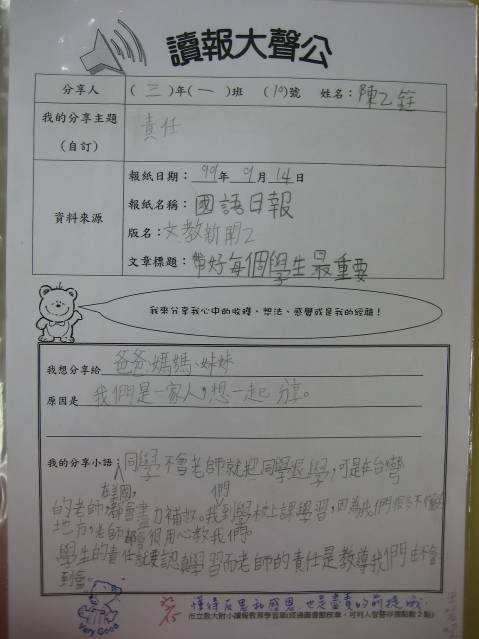 讀報大聲公
分享人 (三)年(一)班 (19)號 姓名:陳乙銓
我的分享主題 (自訂) 責任
資料來源
報紙日期:99年9月14日
報紙名稱:國語日報
版名:文教新聞2
文章標題:帶好每個學生最重要
我來分享我心中的收穫、想法、感覺或是我的經驗!
我想分享給 爸爸媽媽、妹妹
原因是 我們是一家人,想一起分享。
我的分享小語:同學不會老師就把同學退學,可是在台灣
在美國,
的老師都會盡力補救。我們到學校上課學習,因為我們很多不懂的
地方,老師都會很用心教我們。
學生的責任就要認真學習而老師的責任是教導我們由不會
到會。
Very Good
懂得反思和感恩,也是盡責的前提哦
市立教大附小讀報教育學習單(經過圖書館核章,可列入智慧存摺點數2點)